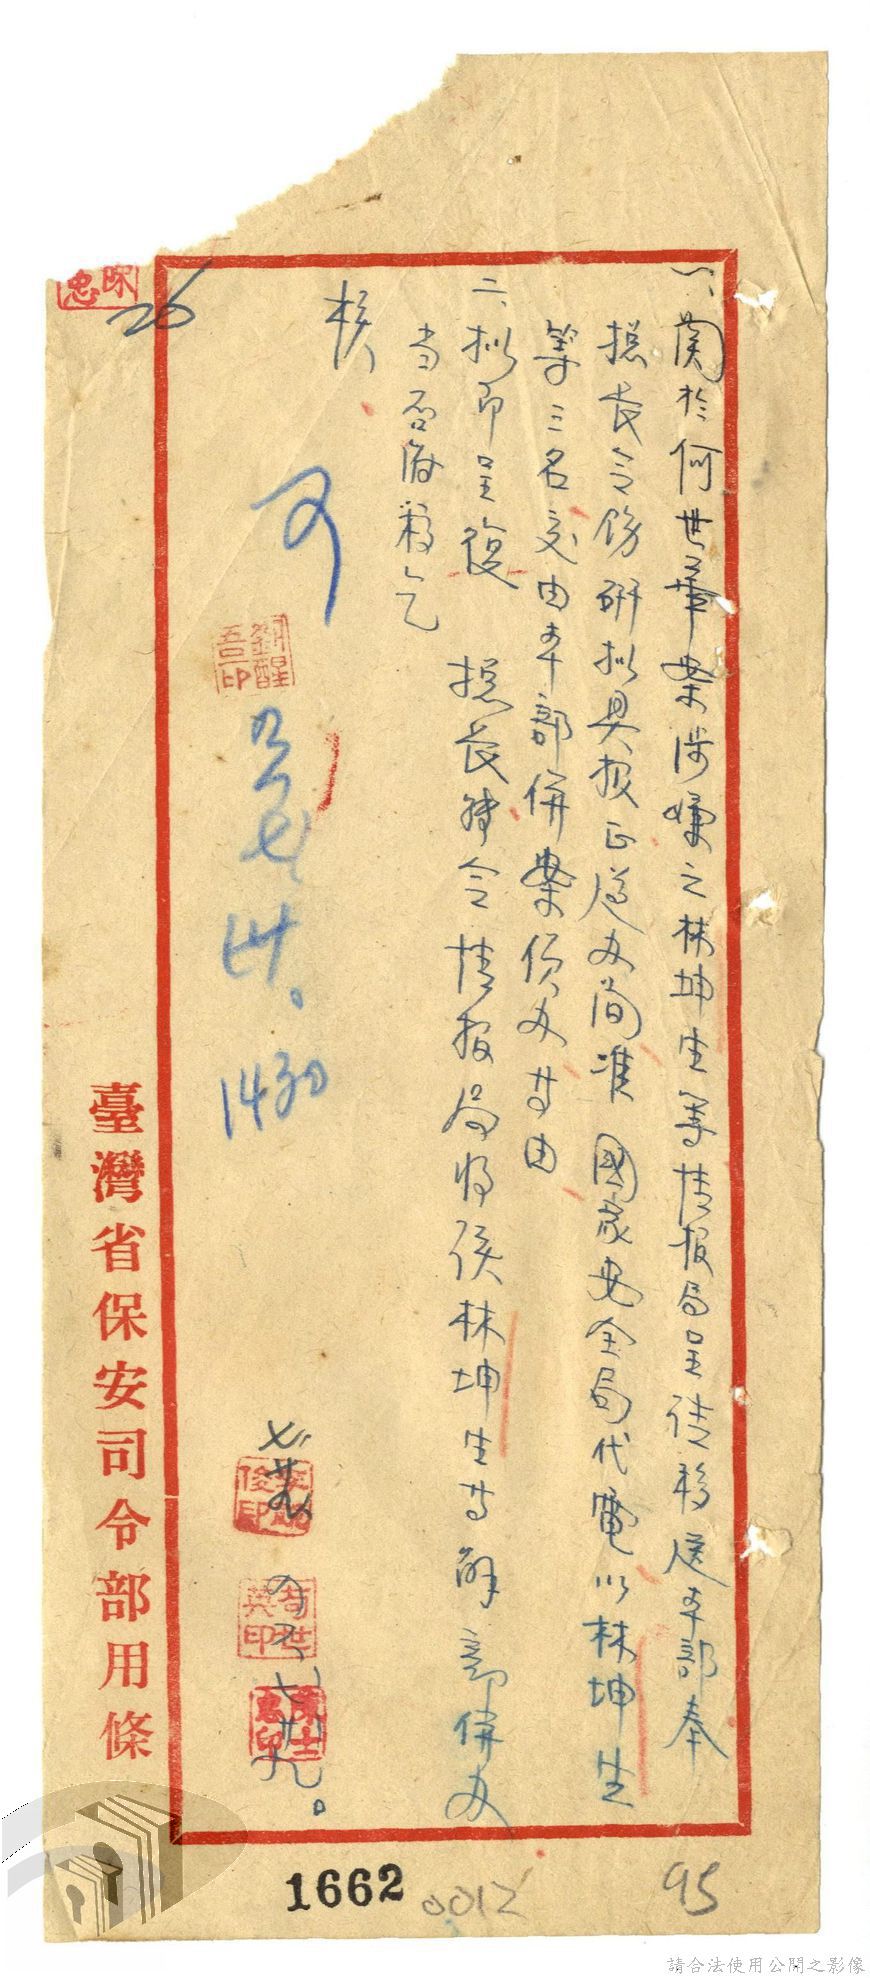 一、関於何世華案涉嫌之林坤生等情报局呈請移送本部奉
總長令飭研拟具报正遵办间准 國家安全局代電以林坤生
等三名交由本部併案偵办等由
二、拟即呈復 總長转令情报局将侯林坤生等解部併办
当否敬乞
核
可
劉醒吾印
七卅。
1430
英印
七廿九。
26
忠
臺灣省保安司令部用條
1662
0012
95
請合法使用公開之影像